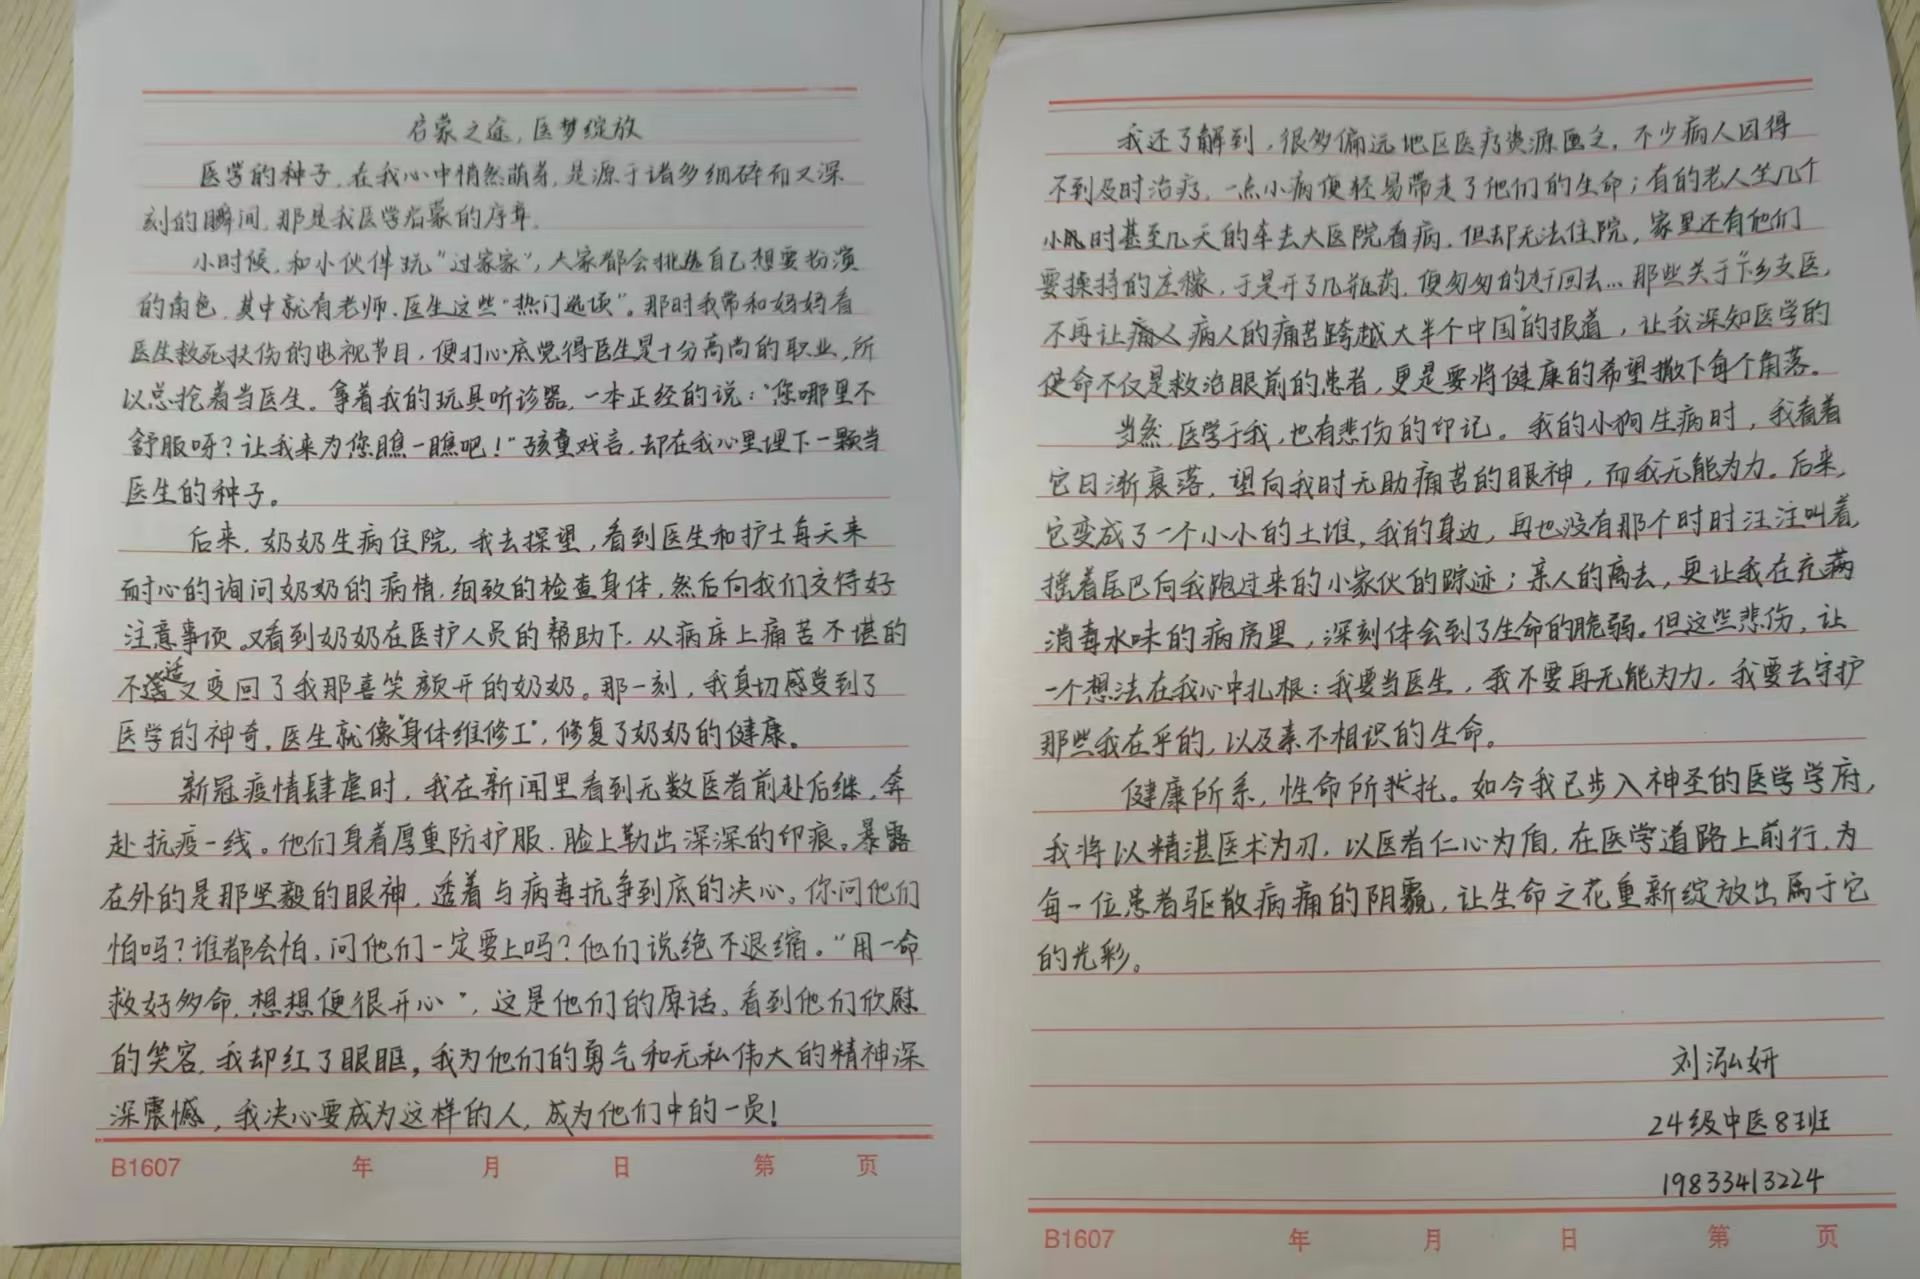 启蒙之途，医梦绽放
医学的种子，在我心中悄然萌芽，是源于诸多细碎而又深
刻的瞬间，那是我医学启蒙的序章。
小时候，和小伙伴玩“过家家”，大家都会挑选自己想要扮演
的角色，其中就有老师、医生这些“热门选项”。那时我常和妈妈看
医生救死扶伤的电视节目，便打心底觉得医生是十分高尚的职业，所
以总抢着当医生。拿着我的玩具听诊器，一本正经的说：“您哪里不
舒服呀？让我来为您瞧一瞧吧！”孩童戏言，却在我心里埋下一颗当
医生的种子。
后来，奶奶生病住院，我去探望，看到医生和护士每天来
耐心的询问奶奶的病情，细致的检查身体，然后向我们交待好
注意事项。又看到奶奶在医护人员的帮助下，从病床上痛苦不堪的
不适又变回了我那喜笑颜开的奶奶。那一刻，我真切感受到了
医学的神奇。医生就像“身体维修工”，修复了奶奶的健康。
新冠疫情肆虐时，我在新闻里看到无数医者前赴后继，奔
赴抗疫一线。他们身着厚重防护服，脸上勒出深深的印痕。暴露
在外的是那坚毅的眼神，透着与病毒抗争到底的决心。你问他们
怕吗？谁都会怕。问他们一定要上吗？他们说绝不退缩。“用一命
救好多命，想想便很开心”，这是他们的原话。看到他们欣慰
的笑容，我却红了眼眶。我为他们的勇气和无私伟大的精神深
深震憾，我决心要成为这样的人，成为他们中的一员！
B1607 年 月 日 第 页
我还了解到，很多偏远地区医疗资源匮乏，不少病人因得
不到及时治疗，一点小病便轻易带走了他们的生命；有的老人坐几个
小时甚至几天的车去大医院看病，但却无法住院，家里还有他们
要操持的庄稼，于是开了几瓶药，便匆匆的赶回去…那些关于“下乡支医，
不再让病人的痛苦跨越大半个中国”的报道，让我深知医学的
使命不仅是救治眼前的患者，更是要将健康的希望撒下每个角落。
当然，医学于我，也有悲伤的印记。我的小狗生病时，我看着
它日渐衰落，望向我时无助痛苦的眼神，而我无能为力。后来，
它变成了一个小小的土堆，我的身边，再也没有那个时时汪汪叫着，
摇着尾巴向我跑过来的小家伙的踪迹；亲人的离去，更让我在充满
消毒水味的病房里，深刻体会到了生命的脆弱。但这些悲伤，让
一个想法在我心中扎根：我要当医生，我不要再无能为力，我要去守护
那些我在乎的，以及素不相识的生命。
健康所系，性命所托。如今我已步入神圣的医学学府，
我将以精湛医术为刃，以医者仁心为盾，在医学道路上前行，为
每一位患者驱散病痛的阴霾，让生命之花重新绽放出属于它
的光彩。
刘泓妍
24级中医8班
19833413224
B1607 年 月 日 第 页